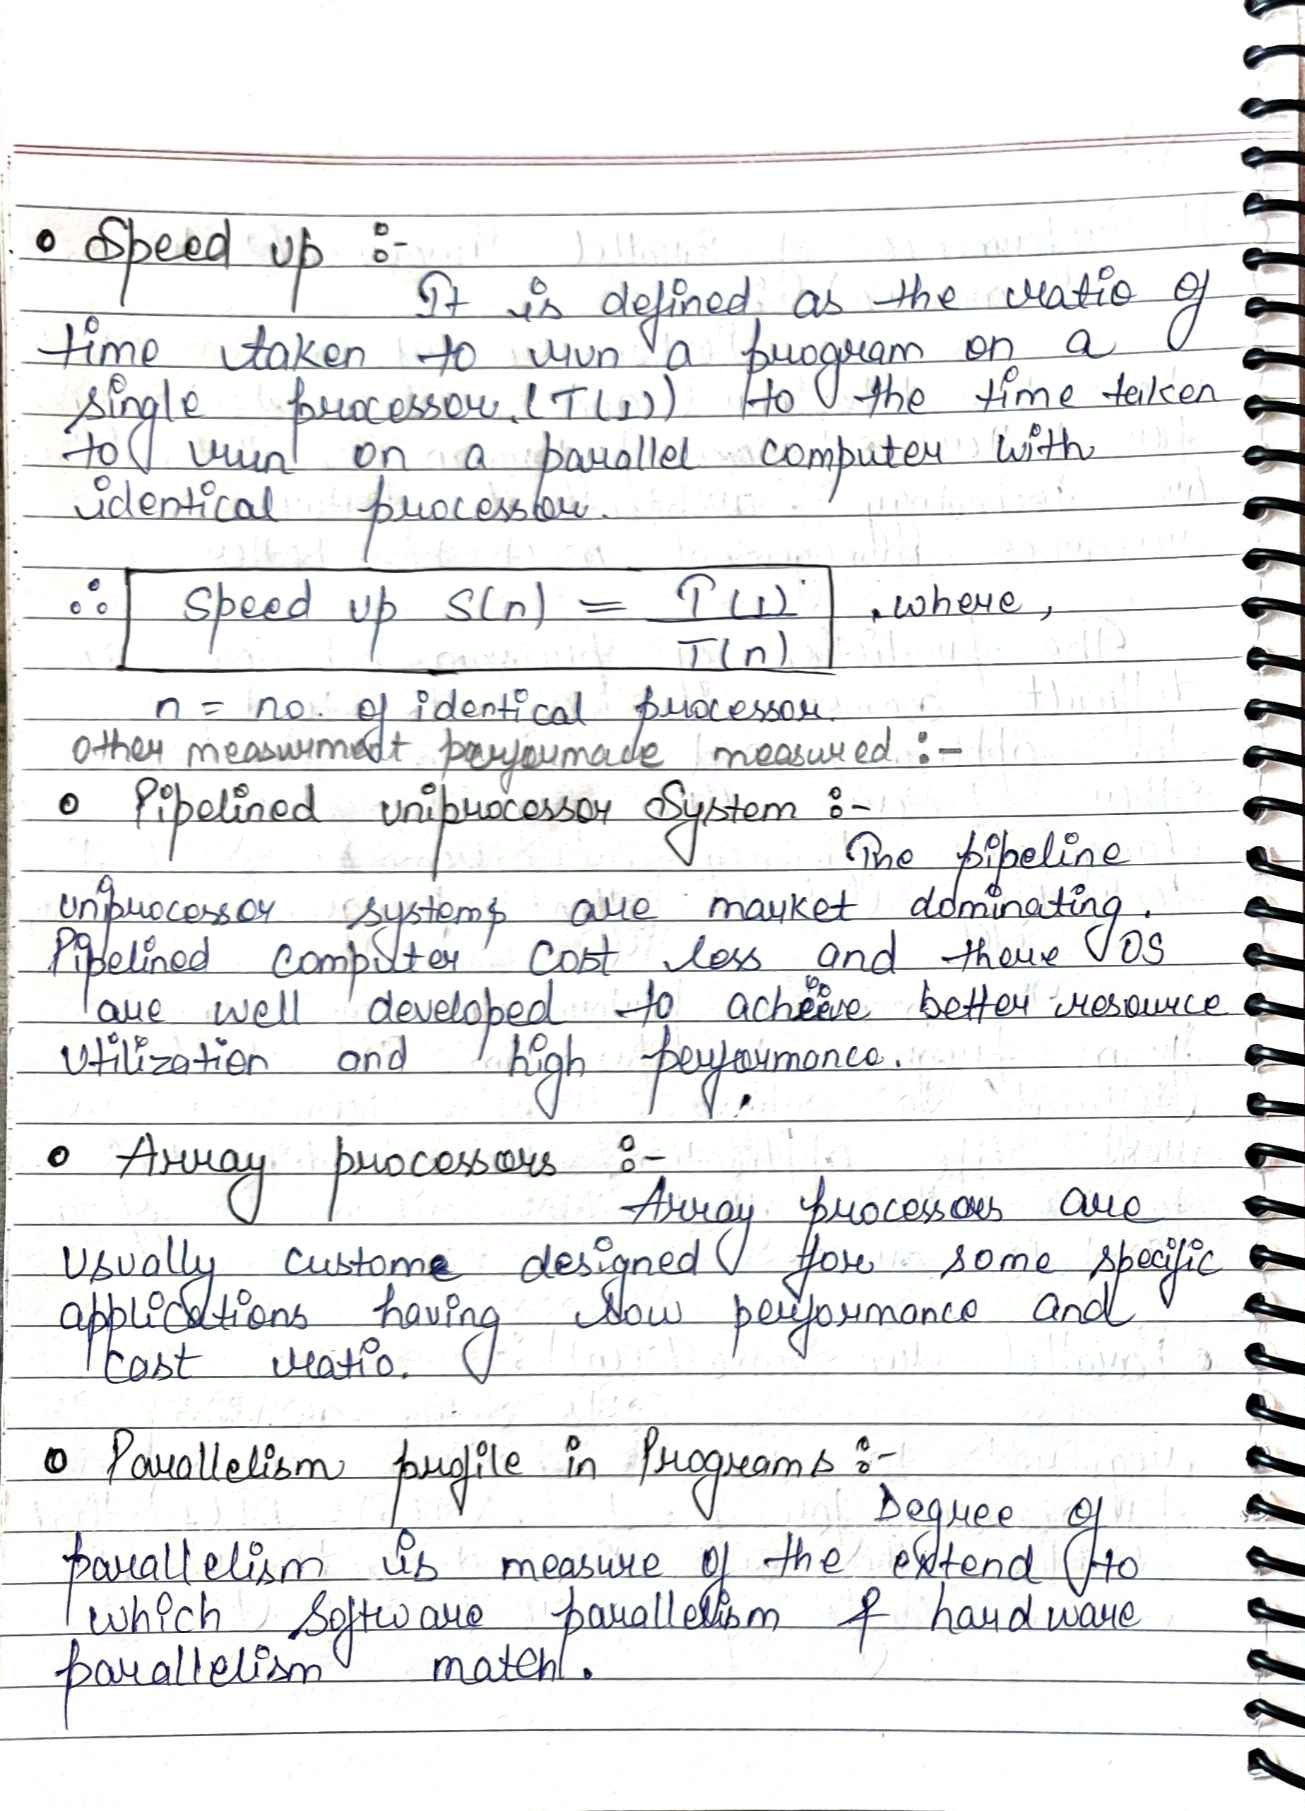 • Speed up :-
It is defined as the ratio of
time taken to run a program on a
single processor (T(1)) to the time taken
to run on a parallel computer with
identical processor.
∴ Speed up S(n) = T(1) / T(n) , where,
n = no. of identical processor.
other measurmest performade measured :-
• Pipelined uniprocessor System :-
The pipeline
uniprocessor systems are market dominating.
Pipelined computer cost less and there OS
are well developed to acheive better resource
utilization and high performance.
• Array processors :-
Array processors are
usually custome designed for some specific
applications having low performance and
cost ratio.
• Parallelism profile in Programs :-
Degree of
parallelism is measure of the extend to
which software parallelism & hardware
parallelism match.